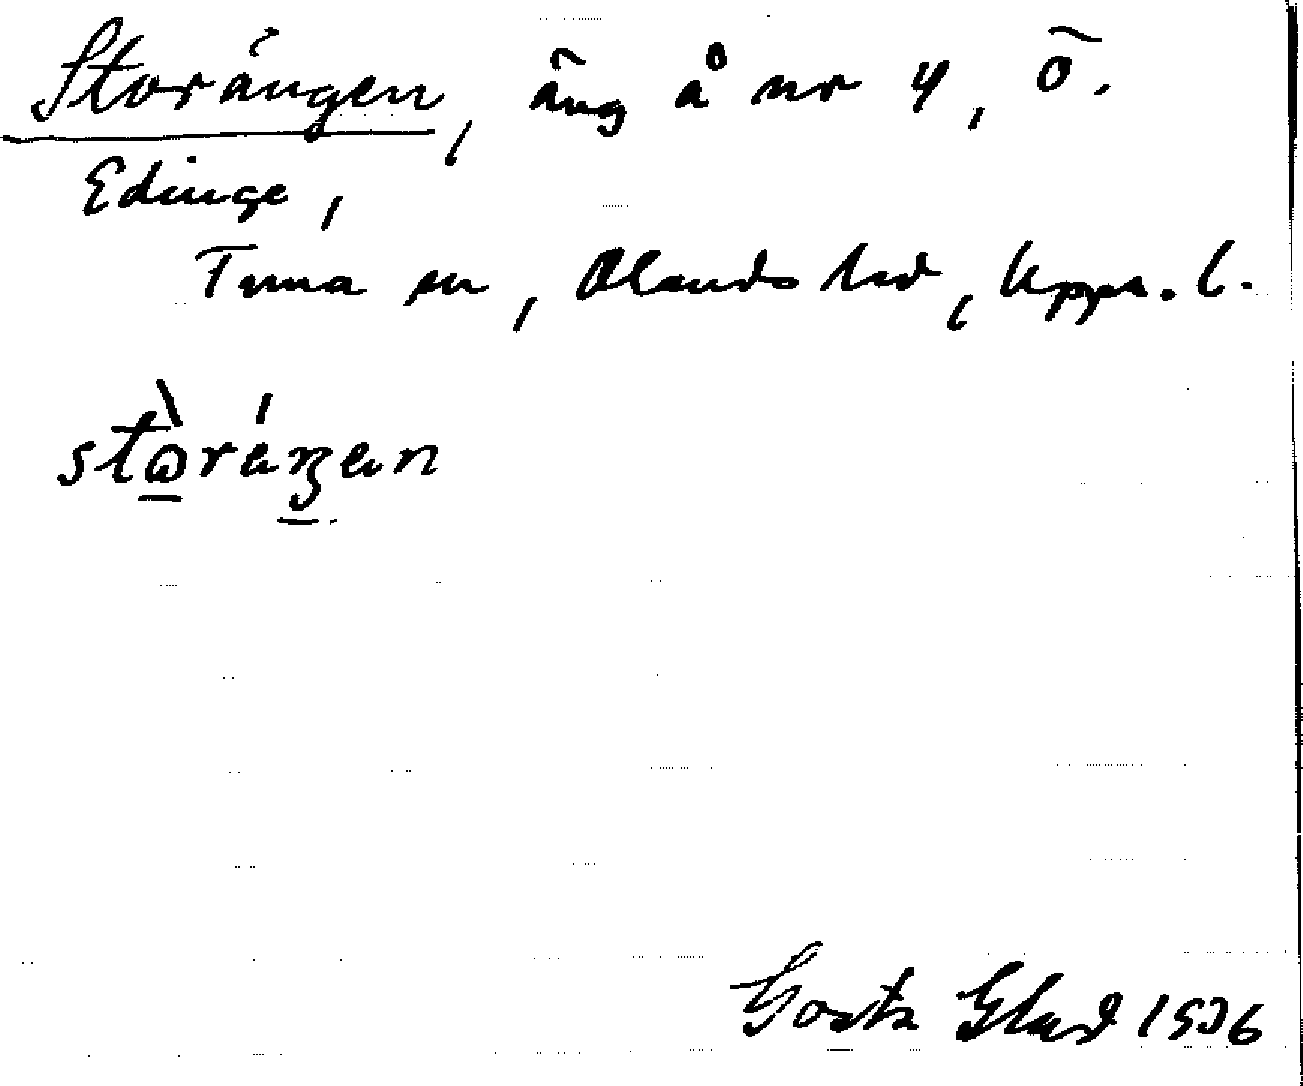 Storängen, äng å nr 4, Ö.
Edinge,
Tuna sn, Olands hd, Upps. l.
stòράŋen
Gösta Glad 1936